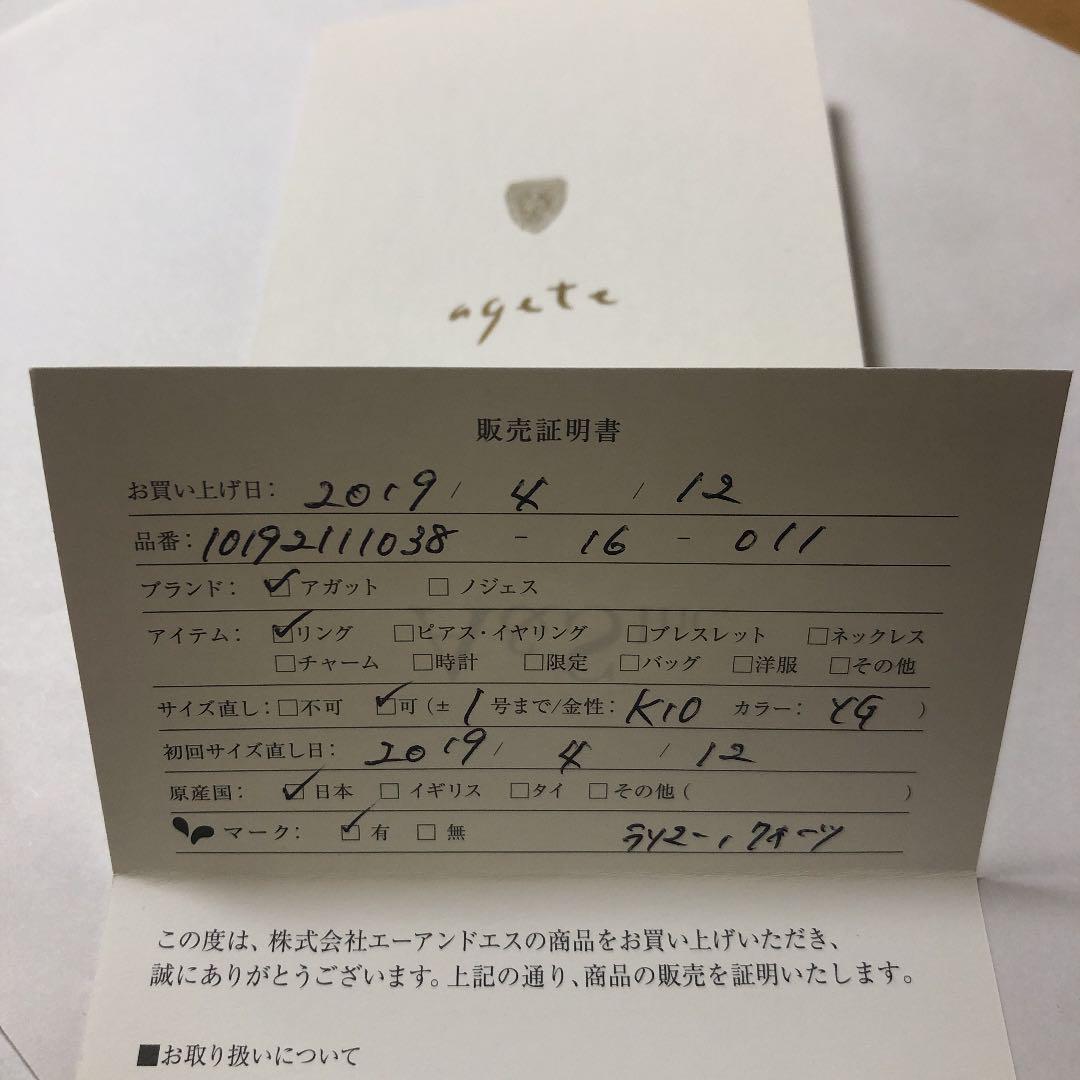 agete
販売証明書
お買い上げ日: 2019 / 4 / 12
品番: 10192111038 - 16 - 011
ブランド: ☑ アガット □ ノジェス
アイテム: ☑リング □ピアス・イヤリング □ブレスレット □ネックレス
□チャーム □時計 □限定 □バッグ □洋服 □その他
サイズ直し: □不可 ☑可 (± 1 号まで/金性: K10 カラー: YG )
初回サイズ直し日: 2019 / 4 / 12
原産国: ☑日本 □ イギリス □タイ □その他 ( )
マーク: ☑ 有 □ 無 クォーツ
この度は、株式会社エーアンドエスの商品をお買い上げいただき、
誠にありがとうございます。上記の通り、商品の販売を証明いたします。
■お取り扱いについて